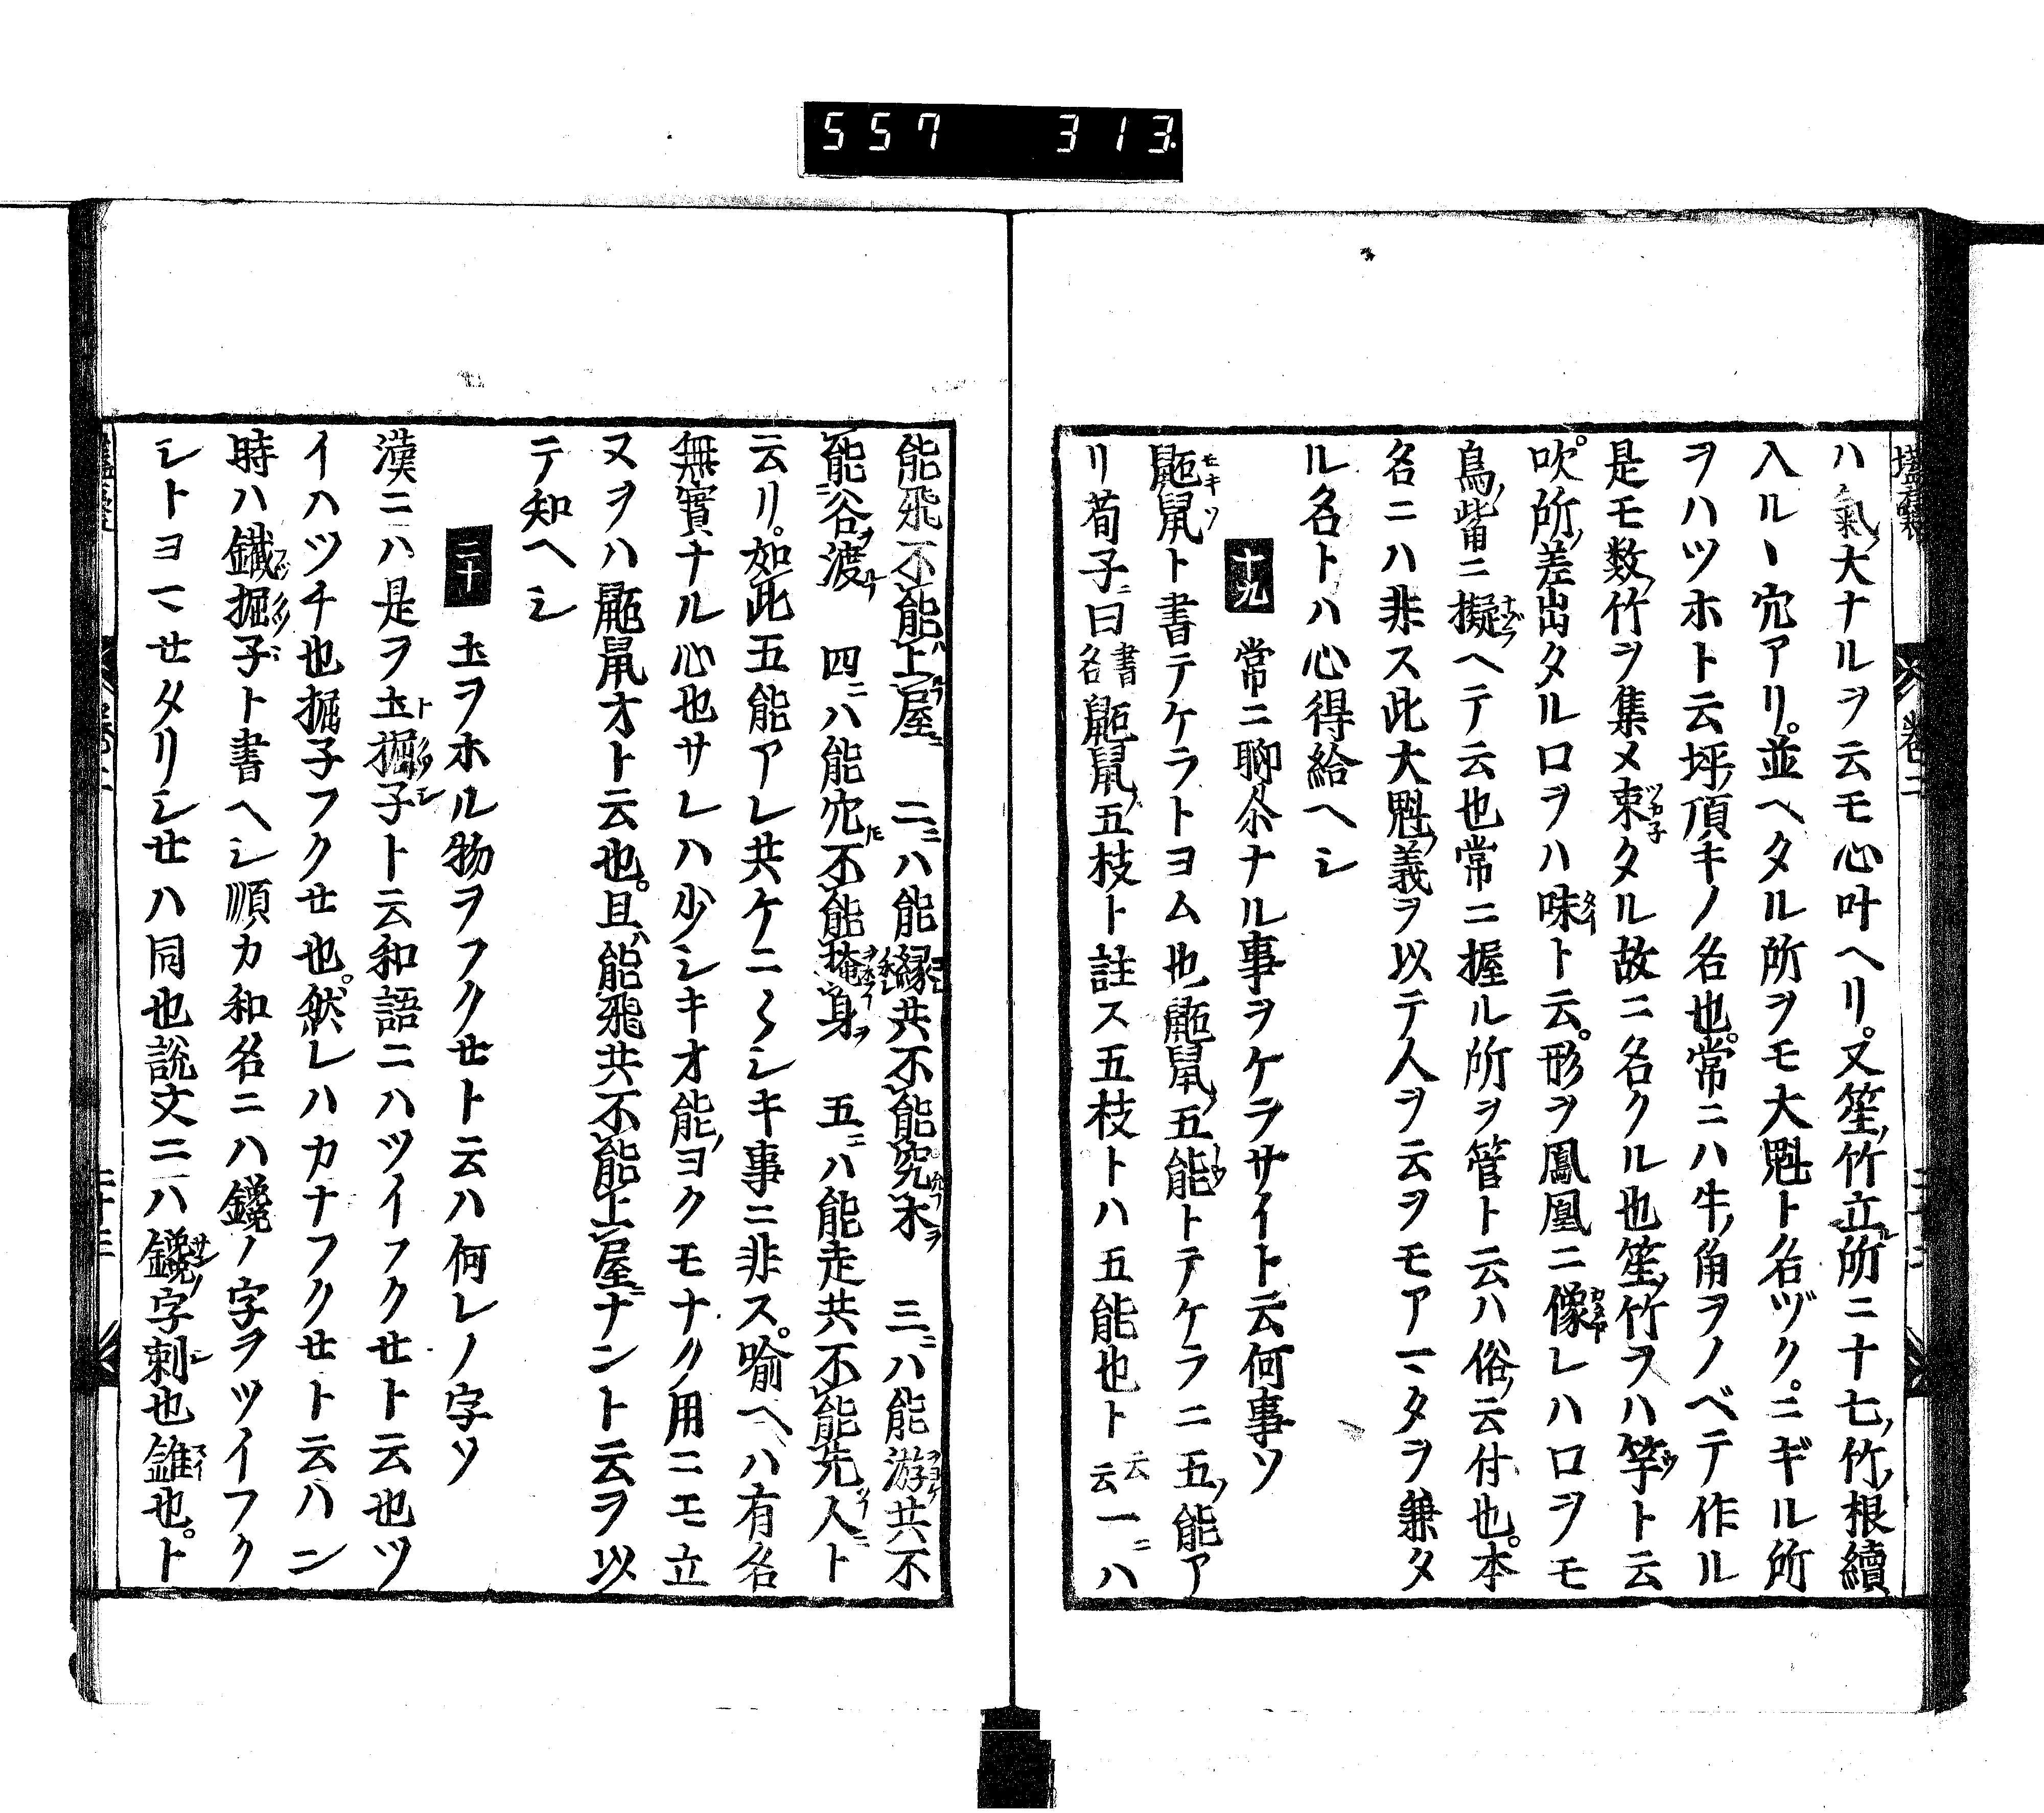 557 313
ハ氣大ナルヲ云モ心叶ヘリ。又笙ノ竹立ル所ニ十七ノ竹ノ根續
入ルヽ穴アリ。並ヘタル所ヲモ大魁ト名ヅク。ニギル所
ヲハツホト云坪ノ頂キノ名也。常ニハ牛ノ角ヲノベテ作ル
是モ数ノ竹ヲ集メ束ツカ子タル故ニ名クル也笙ノ竹ヲハ竿ト云
吹ク所ノ差出タル口ヲハ味ト云。形ヲ鳳凰ニ像レハ口ヲモ
鳥ノ觜ニ擬ナゾラヘテ云也常ニ握ル所ヲ管ト云ハ俗ノ云付也。本
名ニハ非ス此大魁ノ義ヲ以テ人ヲ云ヲモアマタヲ兼タ
ル名トハ心得給ヘシ
十九 常ニ聊尒ナル事ヲケラサイト云何事ソ
鼫鼠ト書テケラトヨム也鼫鼠ノ五能トテケラニ五ノ能ア
リ荀子ニ曰書名鼫鼠ノ五枝ト註ス五枝トハ五能也ト云云一ニハ
能飛不能上屋ニ 二ニハ能縁共不能究木ヲ 三ニハ能游共不
能谷ヲ渡 四ニハ能穴不能掩身ヲ 五ニハ能走共不能先人ニト
云リ。如此五能アレ共ケニ〳〵シキ事ニ非ス。喩ヘハ有名
無實ナル心也サレハ少シキオ能ノヨクモナク用ニモ立
ヌヲハ鼫鼠オト云也。且ハ能飛共不能上屋ニナント云ヲ以
テ知ヘシ
二十 土ヲホル物ヲフクせト云ハ何レノ字ソ
漢ニハ是ヲ土掘子ト云和語ニハツイフクせト云也ツ
イハツチ也掘子フクせ也。然レハカナフクせト云ハン
時ハ鐵掘子ト書ヘシ順カ和名ニハ鑱ノ字ヲツイフク
シトヨマせタリシせハ同也説文ニハ鑱ノ字刺也錐也。ト